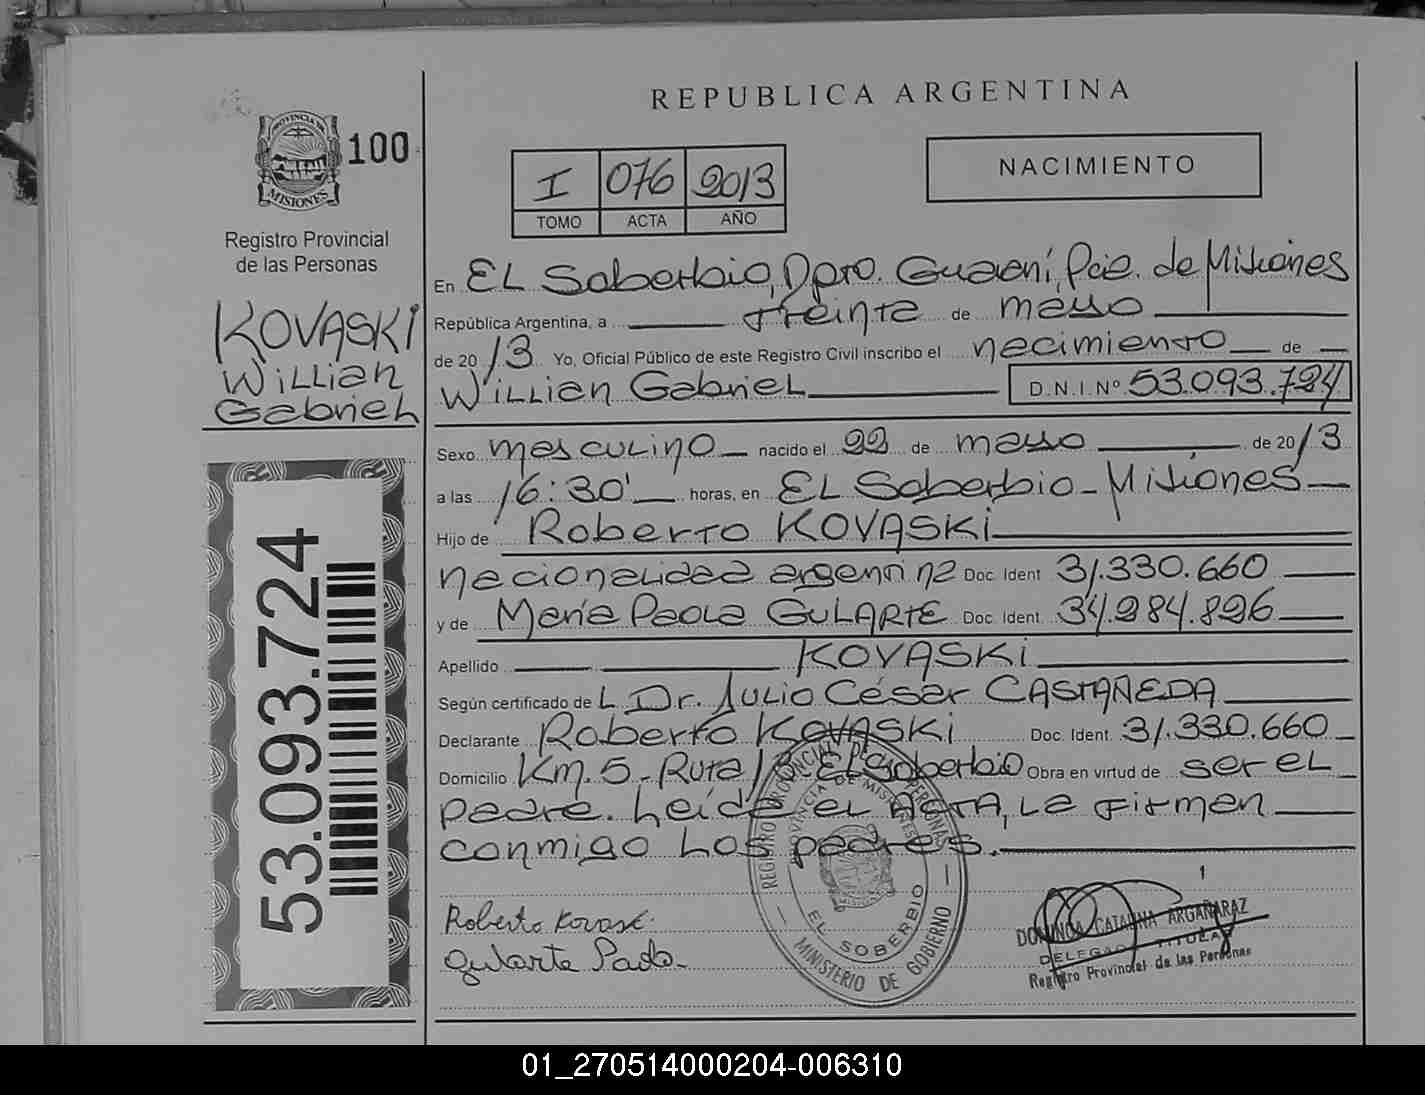 REPUBLICA ARGENTINA
PROVINCIA DE
MISIONES
100
Registro Provincial
de las Personas
KOVASKI
Willian
Gabriel
53.093.724
I 076 2013
TOMO ACTA AÑO
NACIMIENTO
En El Soberbio, Dpto. Guaraní, Pcia. de Misiones
República Argentina, a treinta de mayo
de 2013 Yo, Oficial Público de este Registro Civil inscribo el nacimiento de
Willian Gabriel D.N.I.Nº 53.093.724
Sexo masculino nacido el 22 de mayo de 2013
a las 16:30' horas, en El Soberbio - Misiones
Hijo de Roberto KOVASKI
nacionalidad argentina Doc. Ident 31.330.660
y de María Paola GULARTE Doc. Ident. 34.284.826
Apellido KOVASKI
Según certificado de L Dr. Julio César CASTAÑEDA
Declarante Roberto KOVASKI Doc. Ident. 31.330.660
Domicilio Km. 5 - Ruta 13 El Soberbio Obra en virtud de ser el
padre. Leída el ACTA, la firman
conmigo los padres.
REGISTRO PROVINCIAL DE LAS PERSONAS
PROVINCIA DE MISIONES
EL SOBERBIO
MINISTERIO DE GOBIERNO
Roberto Kovask
Gularte Paola
DOMINGA CATALINA ARGAÑARAZ
DELEGADO TITULAR
Registro Provincial de las Personas
01_270514000204-006310